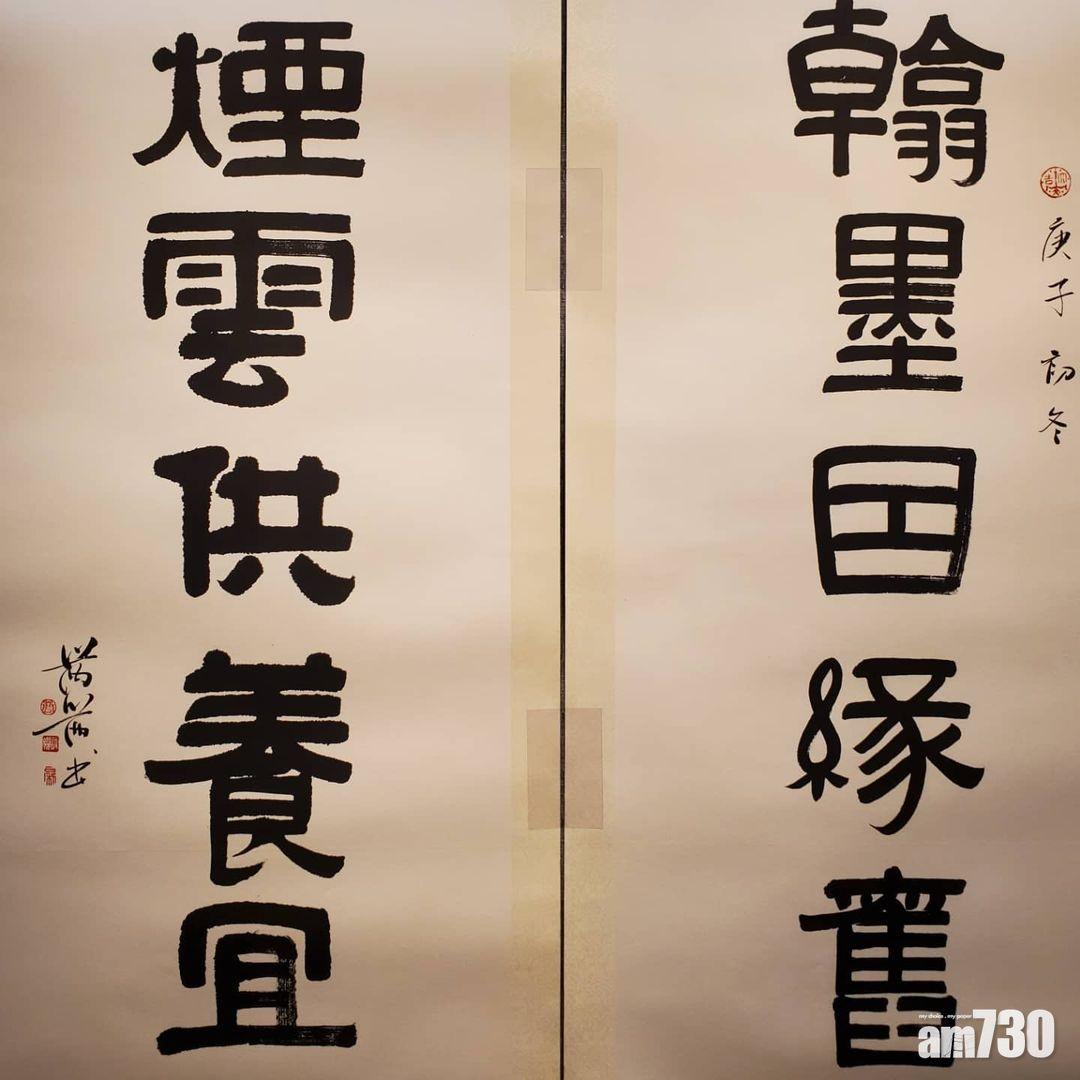 庚子初冬
翰墨因緣舊
煙雲供養宜
書
my choice . my paper
am730